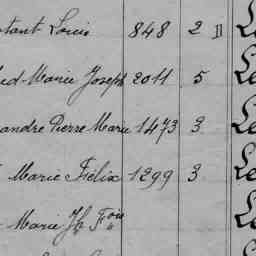 stant Louis 848 2 11 Le
ed Marie Joseph 2011 5 Le
andre Pierre Marie 1473 3 Le
Marie Félix 1299 3 Le
Marie Jh Fois Le